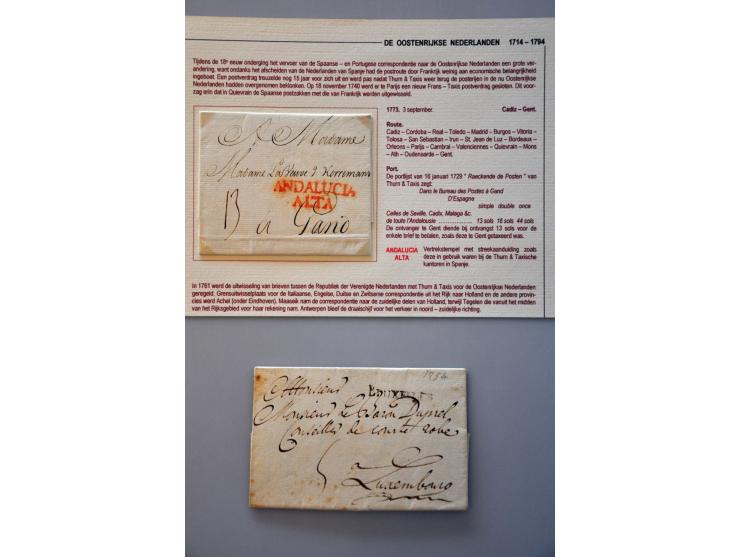 DE OOSTENRIJKSE NEDERLANDEN 1714 – 1794
Tijdens de 18e eeuw onderging het vervoer van de Spaanse – en Portugese correspondentie naar de Oostenrijkse Nederlanden een grote ver-
andering, want ondanks het afscheiden van de Nederlanden van Spanje had de postroute door Frankrijk weinig aan economische belangrijkheid
ingeboet. Een postverdrag treuzelde nog 15 jaar voor zich uit en werd pas nadat Thurn & Taxis weer terug de posterijen in de nu Oostenrijkse
Nederlanden hadden overgenomen beklonken. Op 18 november 1740 werd er te Parijs een nieuw Frans – Taxis postverdrag gesloten. Dit voor-
zag erin dat in Quievrain de Spaanse postzakken met die van Frankrijk werden uitgewisseld.
1773. 3 september. Cadiz – Gent.
Route.
Cadiz – Cordoba – Real – Toledo – Madrid – Burgos – Vitoria –
Tolosa – San Sebastian – Irun – St. Jean de Luz – Bordeaux –
Orleans – Parijs – Cambrai – Valenciennes – Quievrain – Mons
– Ath – Oudenaarde – Gent.
Port.
De portlijst van 16 januari 1729 " Raeckende de Posten " van
Thurn & Taxis zegt:
Dans le Bureau des Postes à Gand
D'Espagne
simple double once
Celles de Seville, Cadix, Malaga &c.
de toute l'Andalousie .................... 13 sols 16 sols 44 sols
De ontvanger te Gent diende bij ontvangst 13 sols voor de
enkele brief te betalen, zoals deze te Gent getaxeerd was.
ANDALUCIA
ALTA
Vertrekstempel met streekaanduiding zoals
deze in gebruik waren bij de Thurn & Taxische
kantoren in Spanje.
A Madame
Madame La Veuve
ANDALUCIA
ALTA
13 à Gand
In 1761 werd de uitwisseling van brieven tussen de Republiek der Verenigde Nederlanden met Thurn & Taxis voor de Oostenrijkse Nederlanden
geregeld. Grensuitwisselplaats voor de Italiaanse, Engelse, Duitse en Zwitserse correspondentie uit het Rijk naar Holland en de andere provin-
cies werd Achel (onder Eindhoven). Maaseik nam de correspondentie naar de zuidelijke delen van Holland, terwijl Tegelen die vanuit het midden
van het Rijksgebied voor haar rekening nam. Antwerpen bleef de draaischijf voor het verkeer in noord – zuidelijke richting.
1754
Monsieur
Monsieur Le Baron
Conseiller de courte robe
5 a
Luxembourg